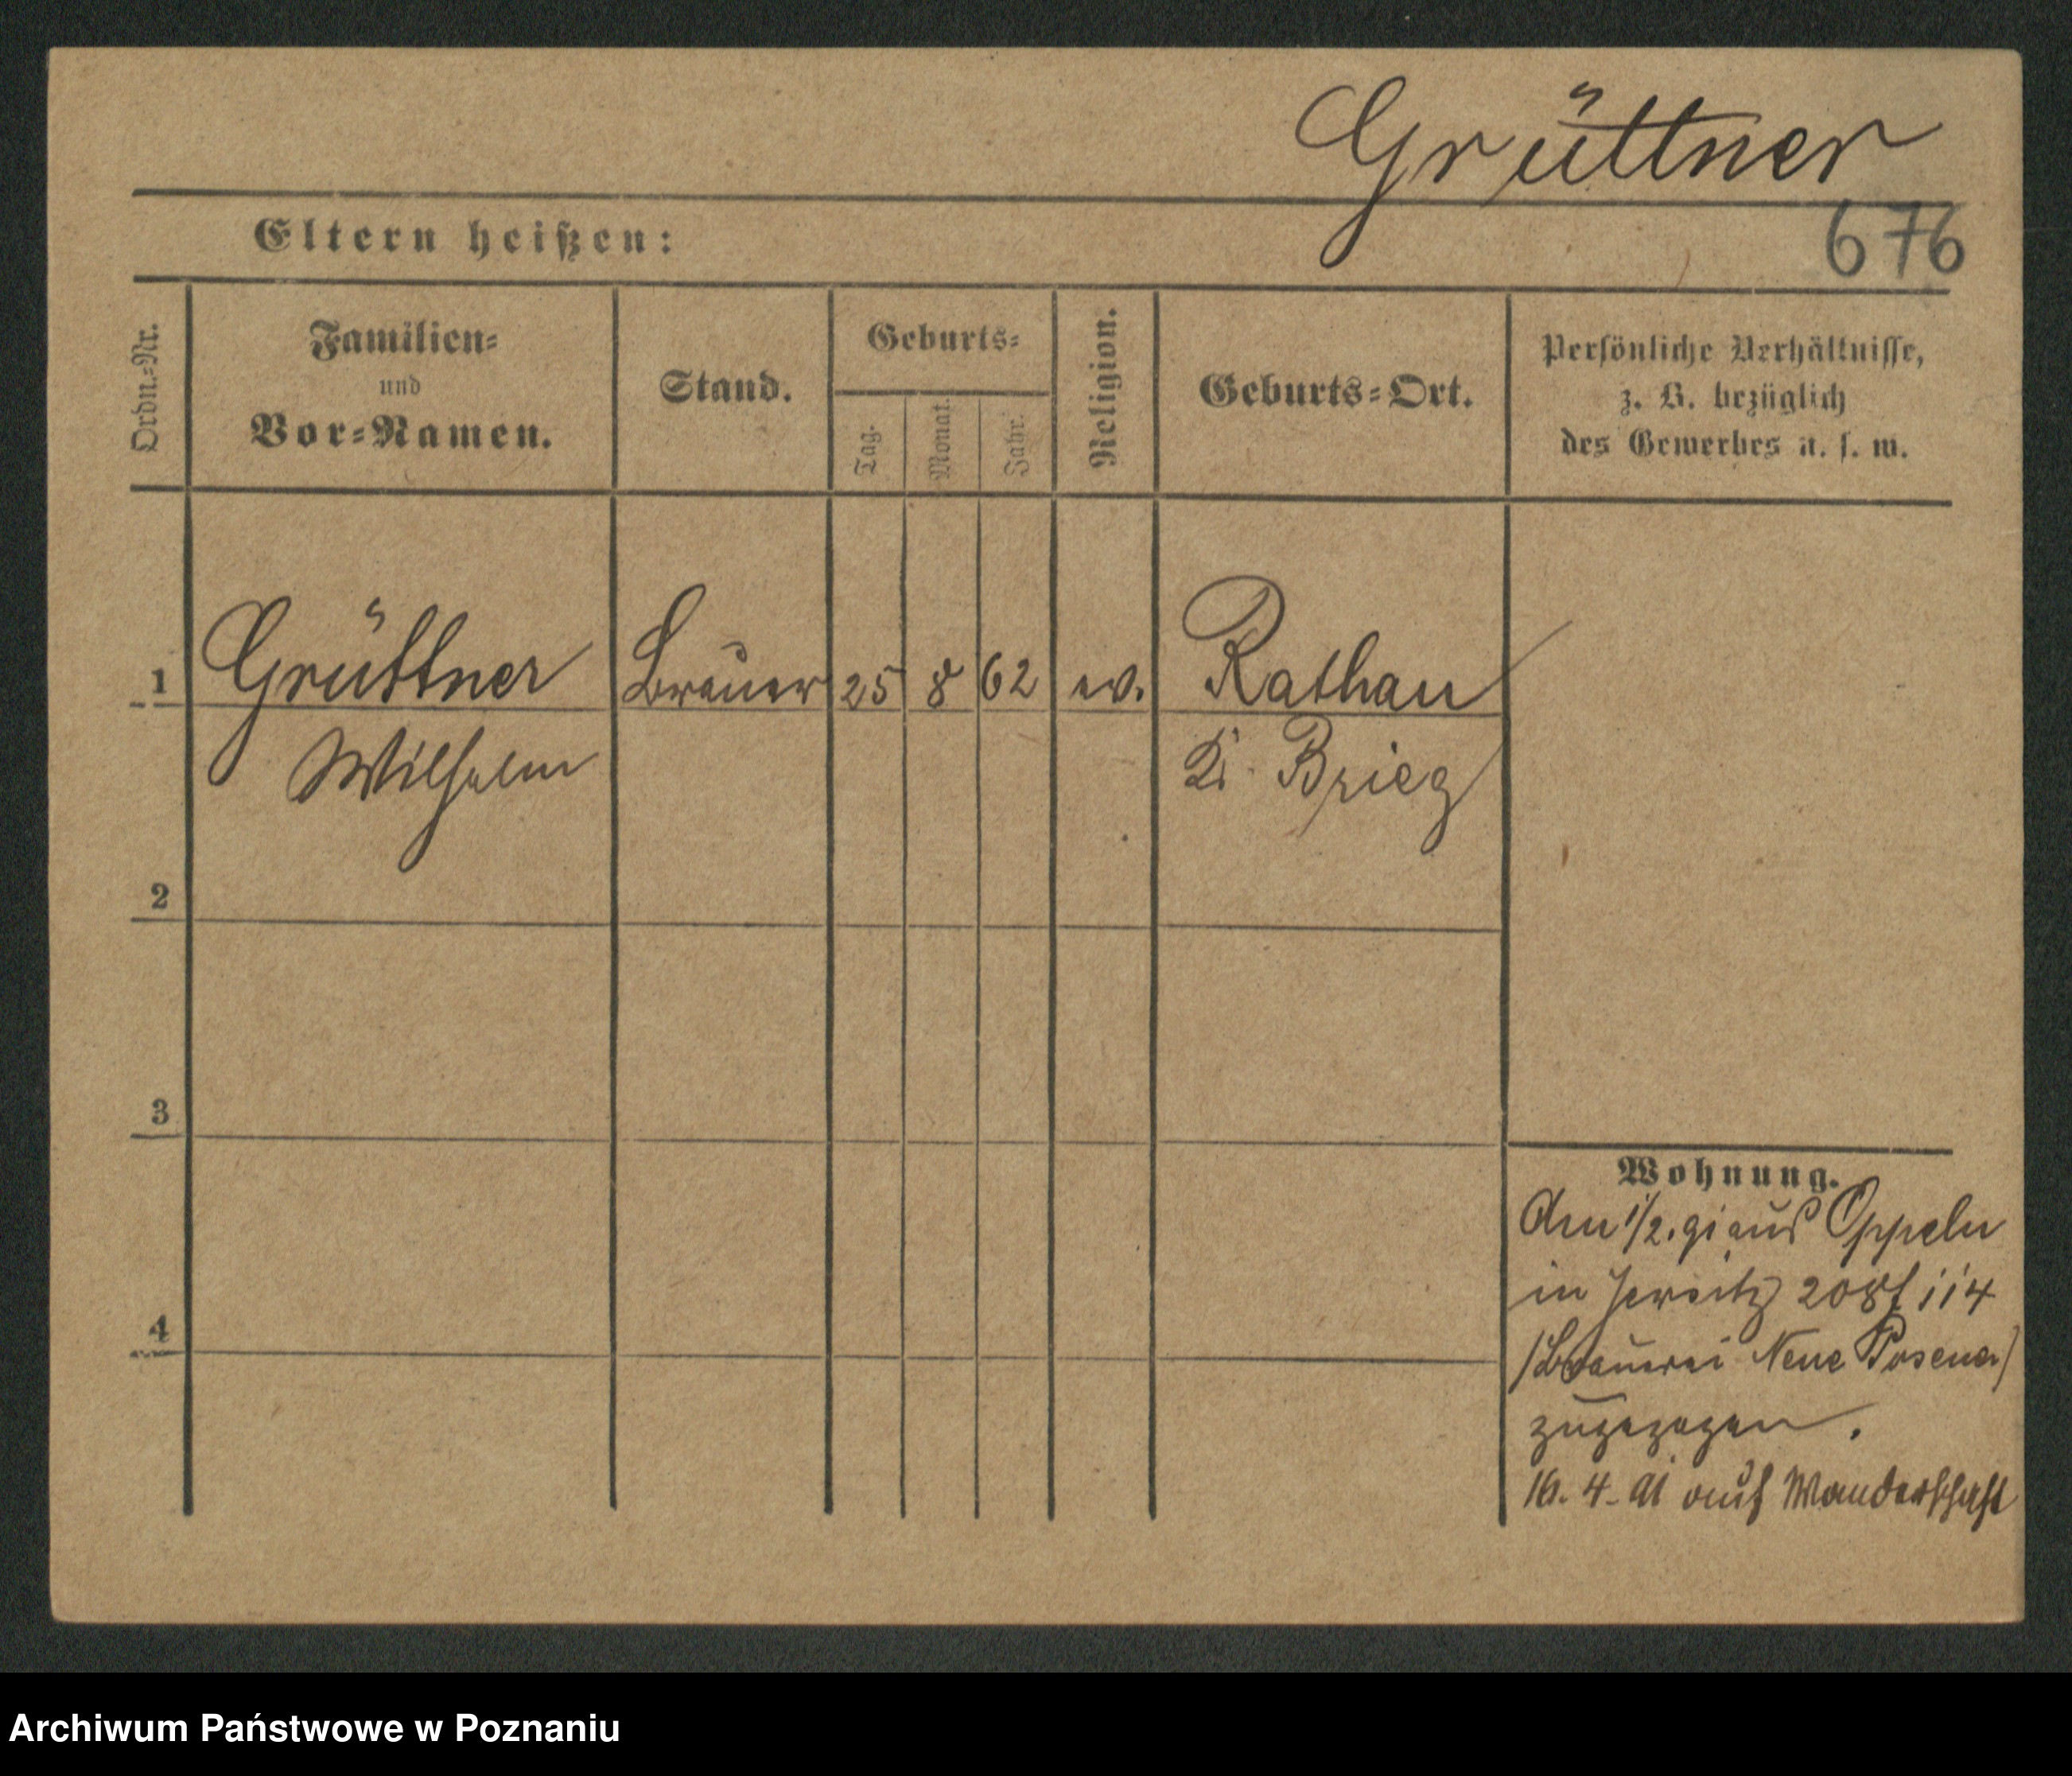 Grüttner
676
Eltern heißen:
Ordn.-Nr.
Familien-
und
Vor-Namen.
Stand.
Geburts-
Tag.
Monat.
Jahr.
Religion.
Geburts-Ort.
Persönliche Verhältnisse,
z. B. bezüglich
des Gewerbes u. s. w.
1 Grüttner Brauer 25 8 62 ev. Rathau
Wilhelm Kr. Brieg
2
3
4
Wohnung.
Am 1/2. 91 aus Oppeln
in Jersitz 208f 114
/Brauerei Neue Posener/
zugezogen.
16. 4. 91 auf Wanderschaft
Archiwum Państwowe w Poznaniu